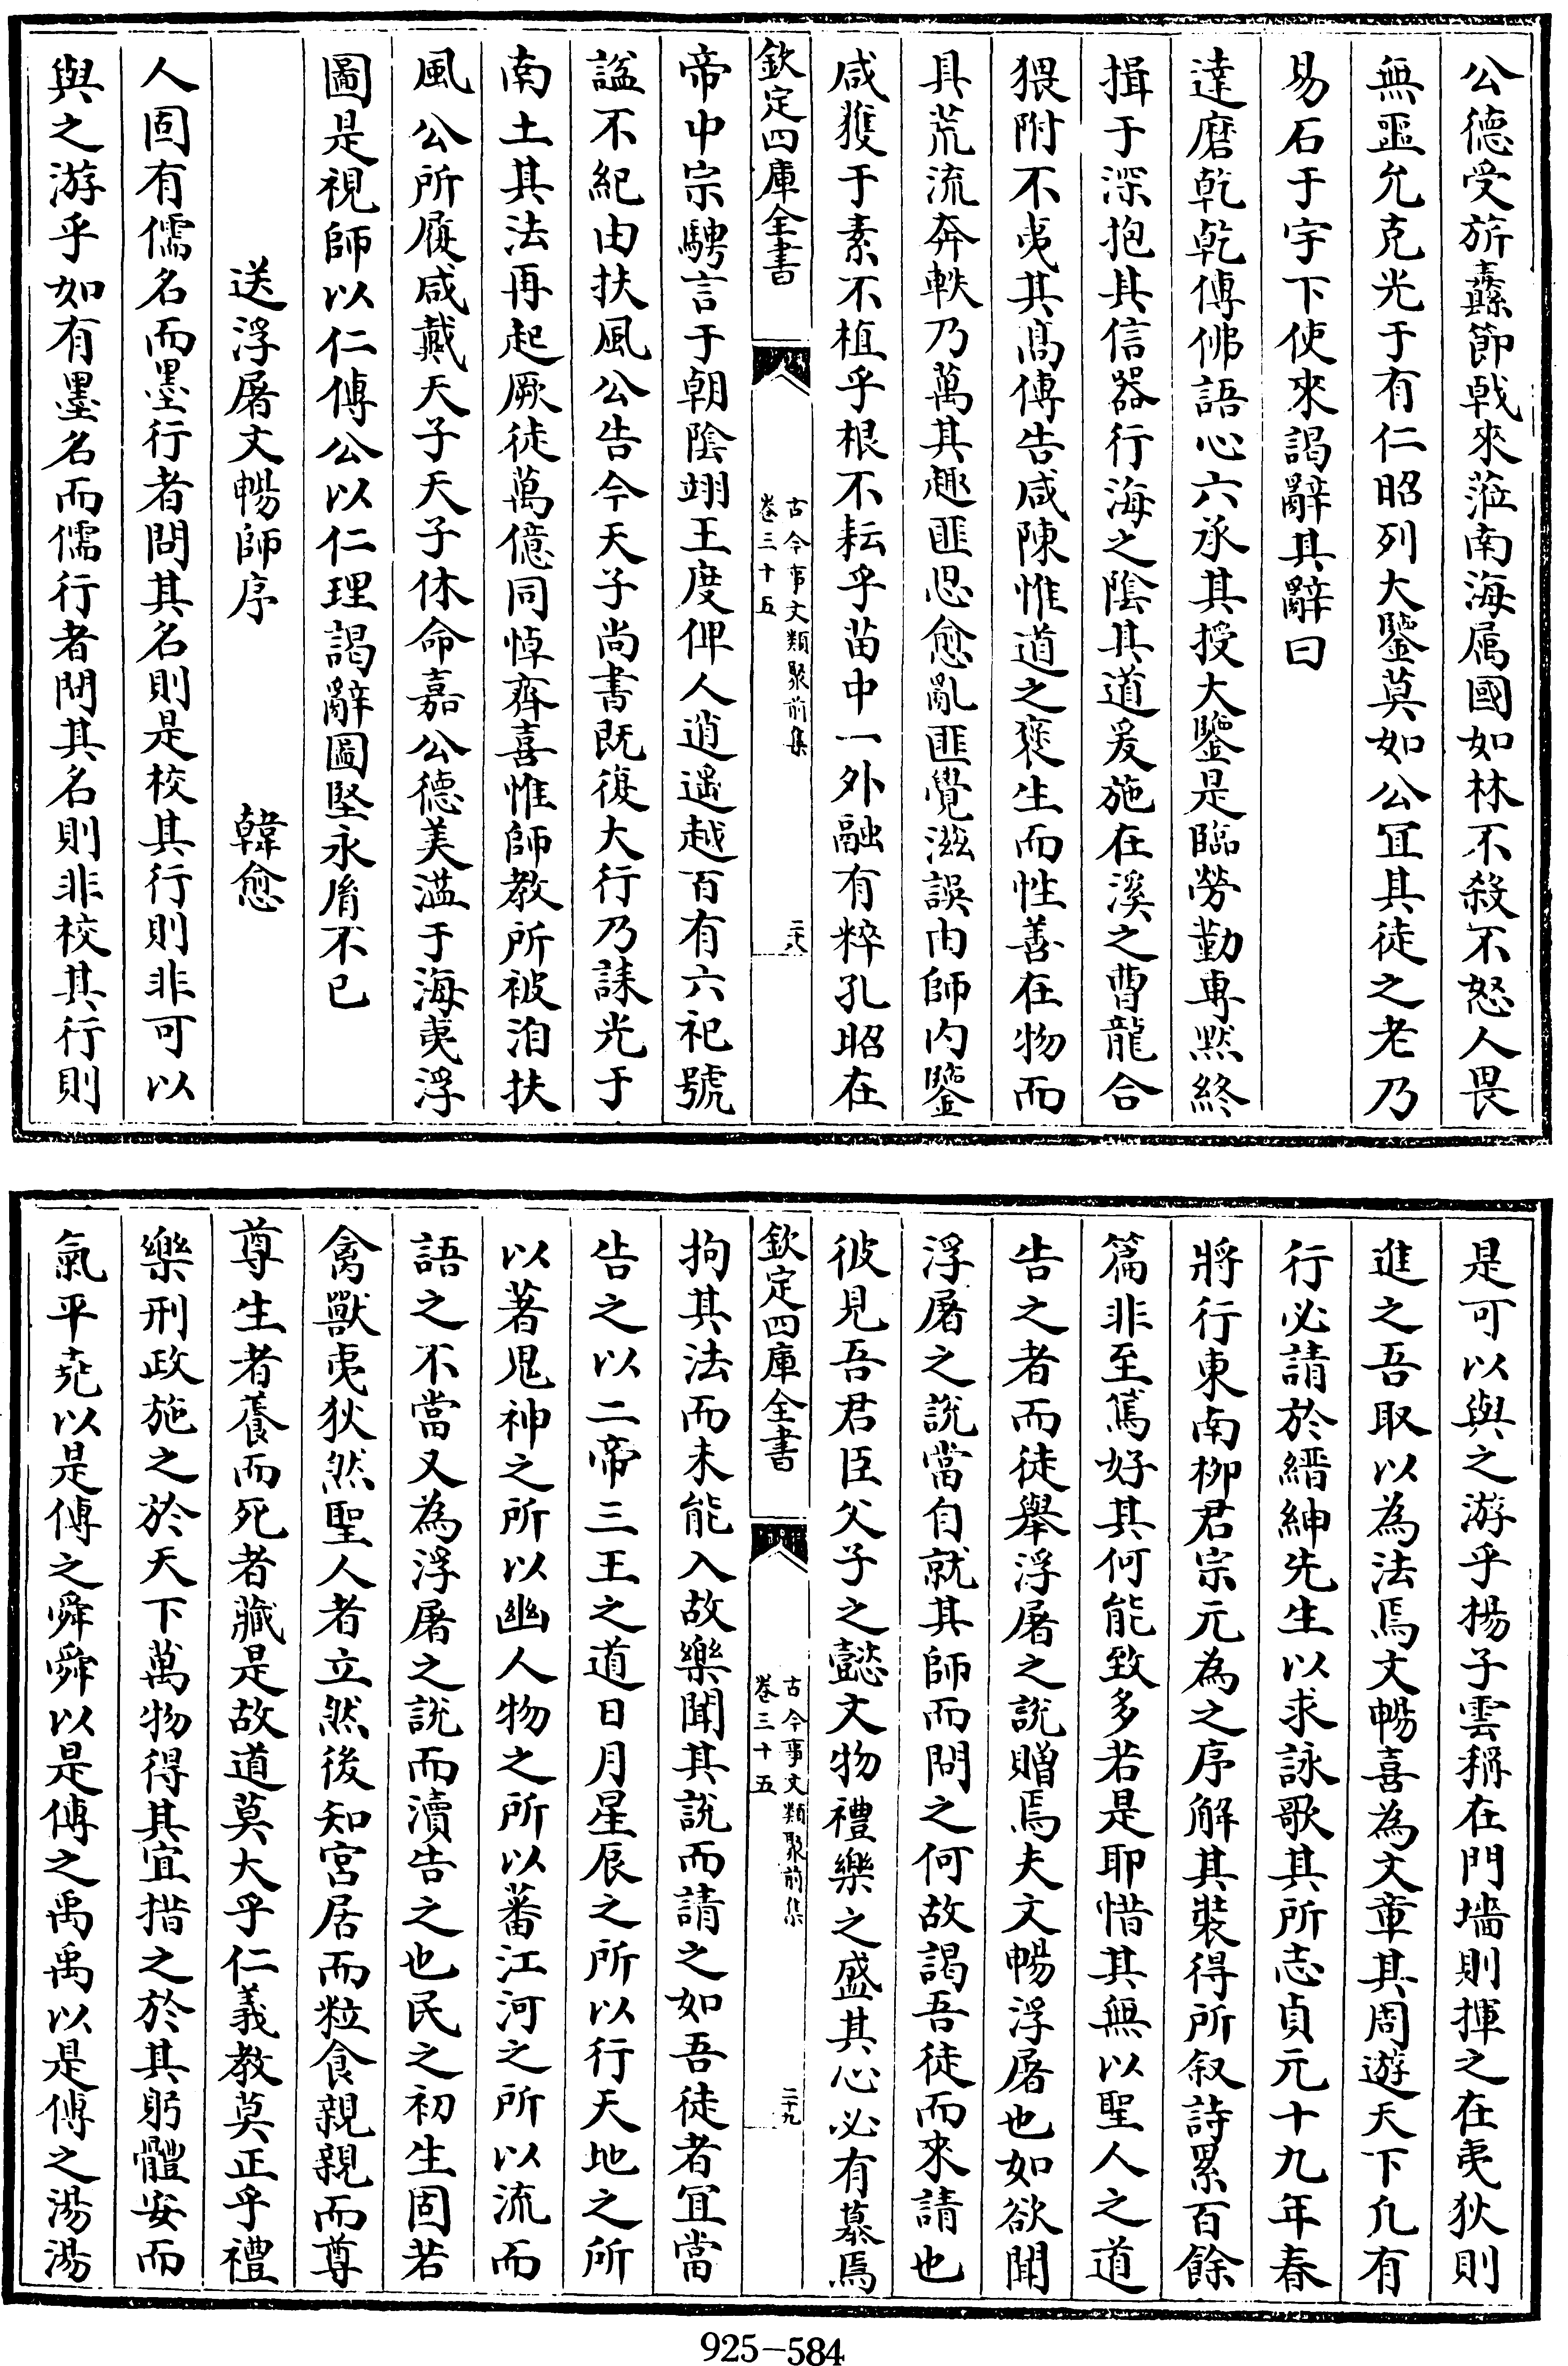 公德受旂纛節戟來蒞南海属國如林不殺不怒人畏
無噩允克光于有仁昭列大鑒莫如公宜其徒之老乃
易石于宇下使來謁辭其辭曰
達磨乾乾傳佛語心六承其授大鑒是臨勞勤專黙終
揖于深抱其信器行海之陰其道爰施在溪之曹龍合
猥附不夷其髙傳告咸陳惟道之襃生而性善在物而
具荒流奔軼乃萬其趣匪思愈亂匪覺滋誤由師内鑒
咸獲于素不植乎根不耘乎苗中一外融有粹孔昭在
欽定四庫全書
古今事文類聚前集
卷三十五
二十八
帝中宗騁言于朝陰翊王度俾人逍遥越百有六祀號
諡不紀由扶風公告今天子尚書既復大行乃誄光于
南土其法再起厥徒萬億同悼齊喜惟師教所被洎扶
風公所履咸戴天子天子休命嘉公德美溢于海夷浮
圖是視師以仁傳公以仁理謁辭圖堅永胥不已
送浮屠文暢師序 韓愈
人固有儒名而墨行者問其名則是校其行則非可以
與之游乎如有墨名而儒行者問其名則非校其行則
是可以與之游乎揚子雲稱在門墻則揮之在夷狄則
進之吾取以為法焉文暢喜為文章其周遊天下凢有
行必請於縉紳先生以求詠歌其所志貞元十九年春
將行東南柳君宗元為之序解其裝得所叙詩累百餘
篇非至篤好其何能致多若是耶惜其無以聖人之道
告之者而徒舉浮屠之說贈焉夫文暢浮屠也如欲聞
浮屠之說當自就其師而問之何故謁吾徒而來請也
彼見吾君臣父子之懿文物禮樂之盛其心必有慕焉
欽定四庫全書
古今事文類聚前集
卷三十五
二十九
拘其法而未能入故樂聞其說而請之如吾徒者宜當
告之以二帝三王之道日月星辰之所以行天地之所
以著鬼神之所以幽人物之所以蕃江河之所以流而
語之不當又為浮屠之說而瀆告之也民之初生固若
禽獸夷狄然聖人者立然後知宮居而粒食親親而尊
尊生者養而死者藏是故道莫大乎仁義教莫正乎禮
樂刑政施之於天下萬物得其宜措之於其躬體安而
氣平堯以是傳之舜舜以是傳之禹禹以是傳之湯湯
925-584